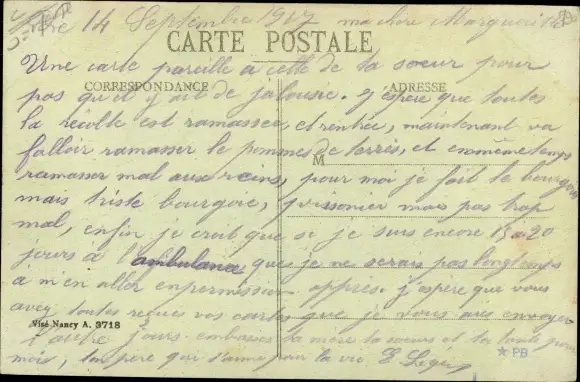 le 14 Septembre 1917 ma chère Marguerite
CARTE POSTALE
Une carte pareille a celle de ta soeur pour
CORRESPONDANCE ADRESSE
pas qu'il y ait de jalousie. J'espere que toutes
la récolte est ramassée, et rentrée, maintenant va
falloir ramasser le pommes de terres, et en même temps
M
ramasser mal aux reins, pour moi je fait le bourgois
mais triste bourgois, mais pas trop
mal, enfin je croit que si je suis encore 15 a 20
jours a l'ambulance que je ne serais pas longtemps
a m'en aller en permission appres. j'espere que vous
avez toutes reçues vos cartes que je vous ares envoyer
Visé Nancy A. 3718
l'autre jours. embrasses ta mere ta soeurs et ta tante pour
mois, ton père qui t'aime pour la vie E Leger
PB